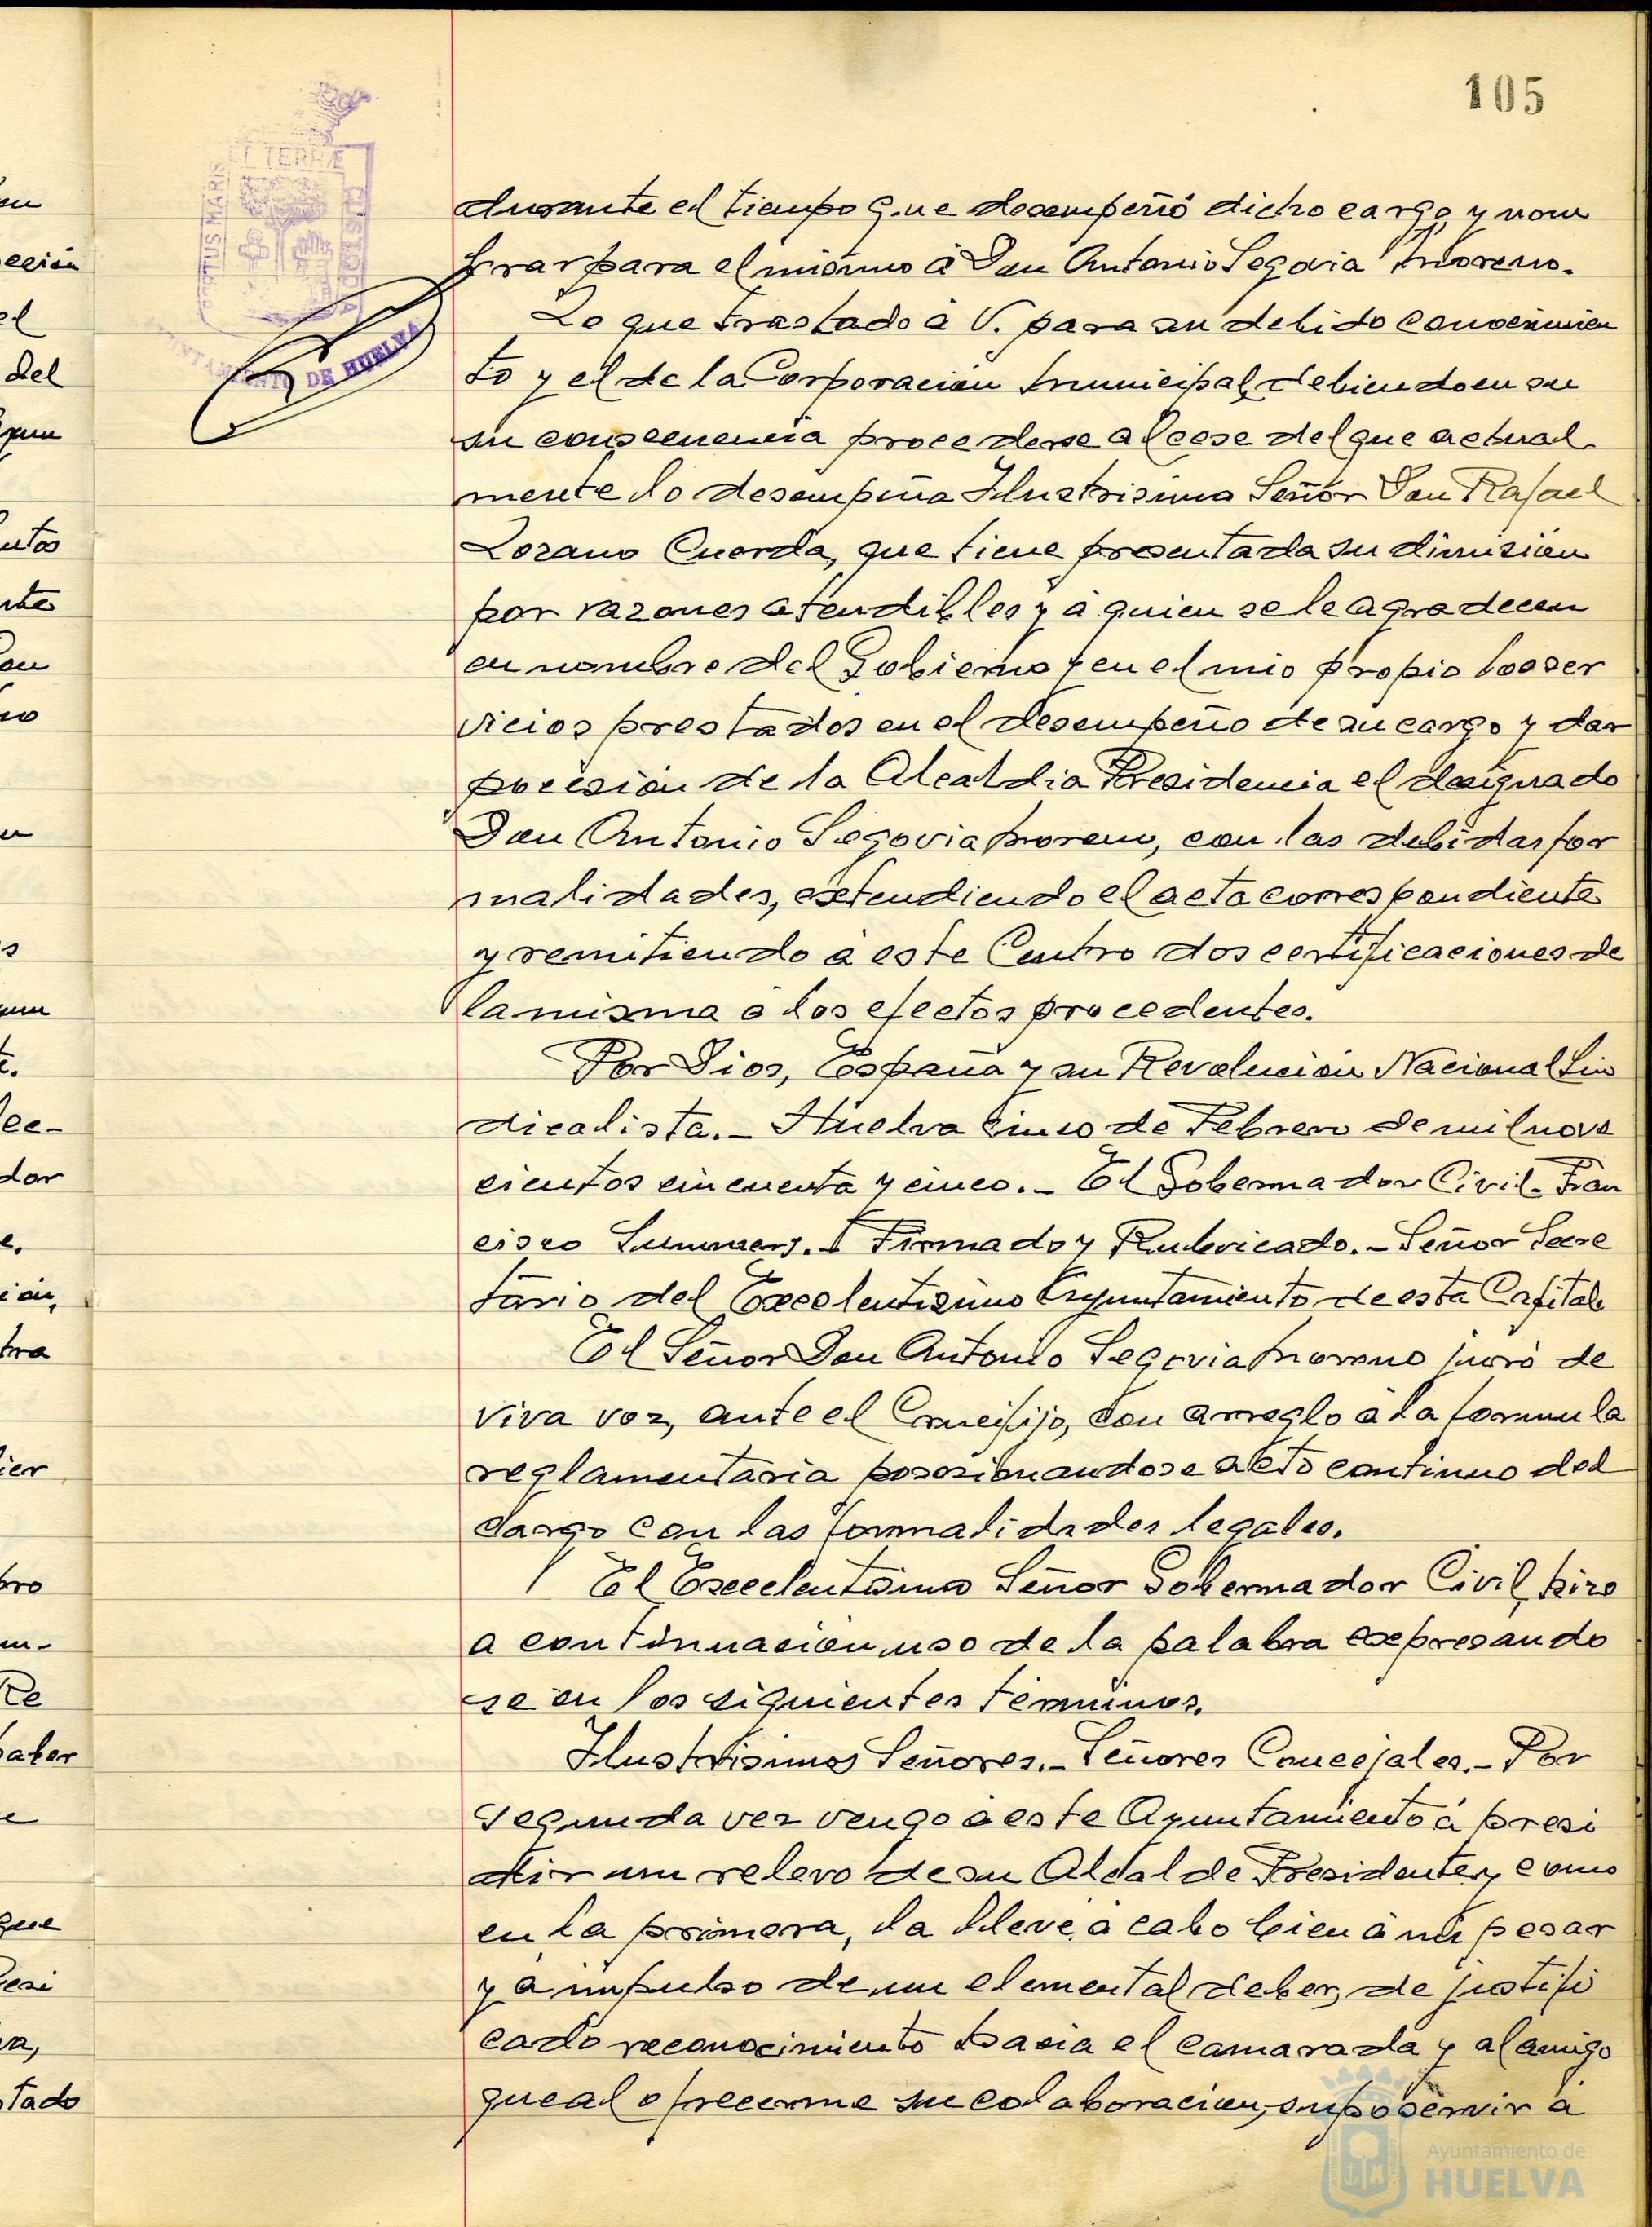 105
durante el tiempo que desempeñó dicho cargo, y nom
brar para el mismo á Don Antonio Segovia Moreno.
Lo que traslado á V. para su debido conocimien
to y el de la Corporacion Municipal, debiendo en su
su consecuencia procederse al cese del que actual
mente lo desempeña Ilustrisimo Señor Don Rafael
Lozano Cuerda, que tiene presentada su dimision
por razones atendibles y a quien se le agradecen
en nombre del Gobierno y en el mio propio los ser
vicios prestados en el desempeño de su cargo y dar
posesion de la Alcaldia Presidencia el designado
Don Antonio Segovia Moreno, con las debidas for
malidades, extendiendo el acta correspondiente
y remitiendo a este Centro dos certificaciones de
la misma a los efectos procedentes.
Por Dios, España y su Revolucion Nacional Sin
dicalista.- Huelva cinco de Febrero de mil nove
cientos cincuenta y cinco.- El Gobernador Civil- Fran
cisco Summers. Firmado y Rubricado.- Señor Secre
tario del Excelentisimo Ayuntamiento de esta Capital
El Señor Don Antonio Segovia Moreno juró de
viva voz, ante el Crucifijo, con arreglo a la formula
reglamentaria posesionandose acto continuo del
cargo con las formalidades legales.
El Excelentisimo Señor Gobernador Civil, hizo
a continuacion uso de la palabra expresando
se en los siguientes terminos.
Ilustrisimos Señores.- Señores Concejales.- Por
segunda vez vengo a este Ayuntamiento á presi
dir un relevo de su Alcalde Presidente y, como
en la primera, la lleve a cabo bien á mi pesar
y a impulso de un elemental deber, de justifi
cado reconocimiento hacia el camarada y al amigo
que al ofrecerme su colaboracion, supo servir á
en
el
del
utos
no
dor
tra
ier
bro
Re
aber
que
tado
ET TERRÆ
PORTUS MARIS
AYUNTAMIENTO DE HUELVA
Ayuntamiento de
HUELVA